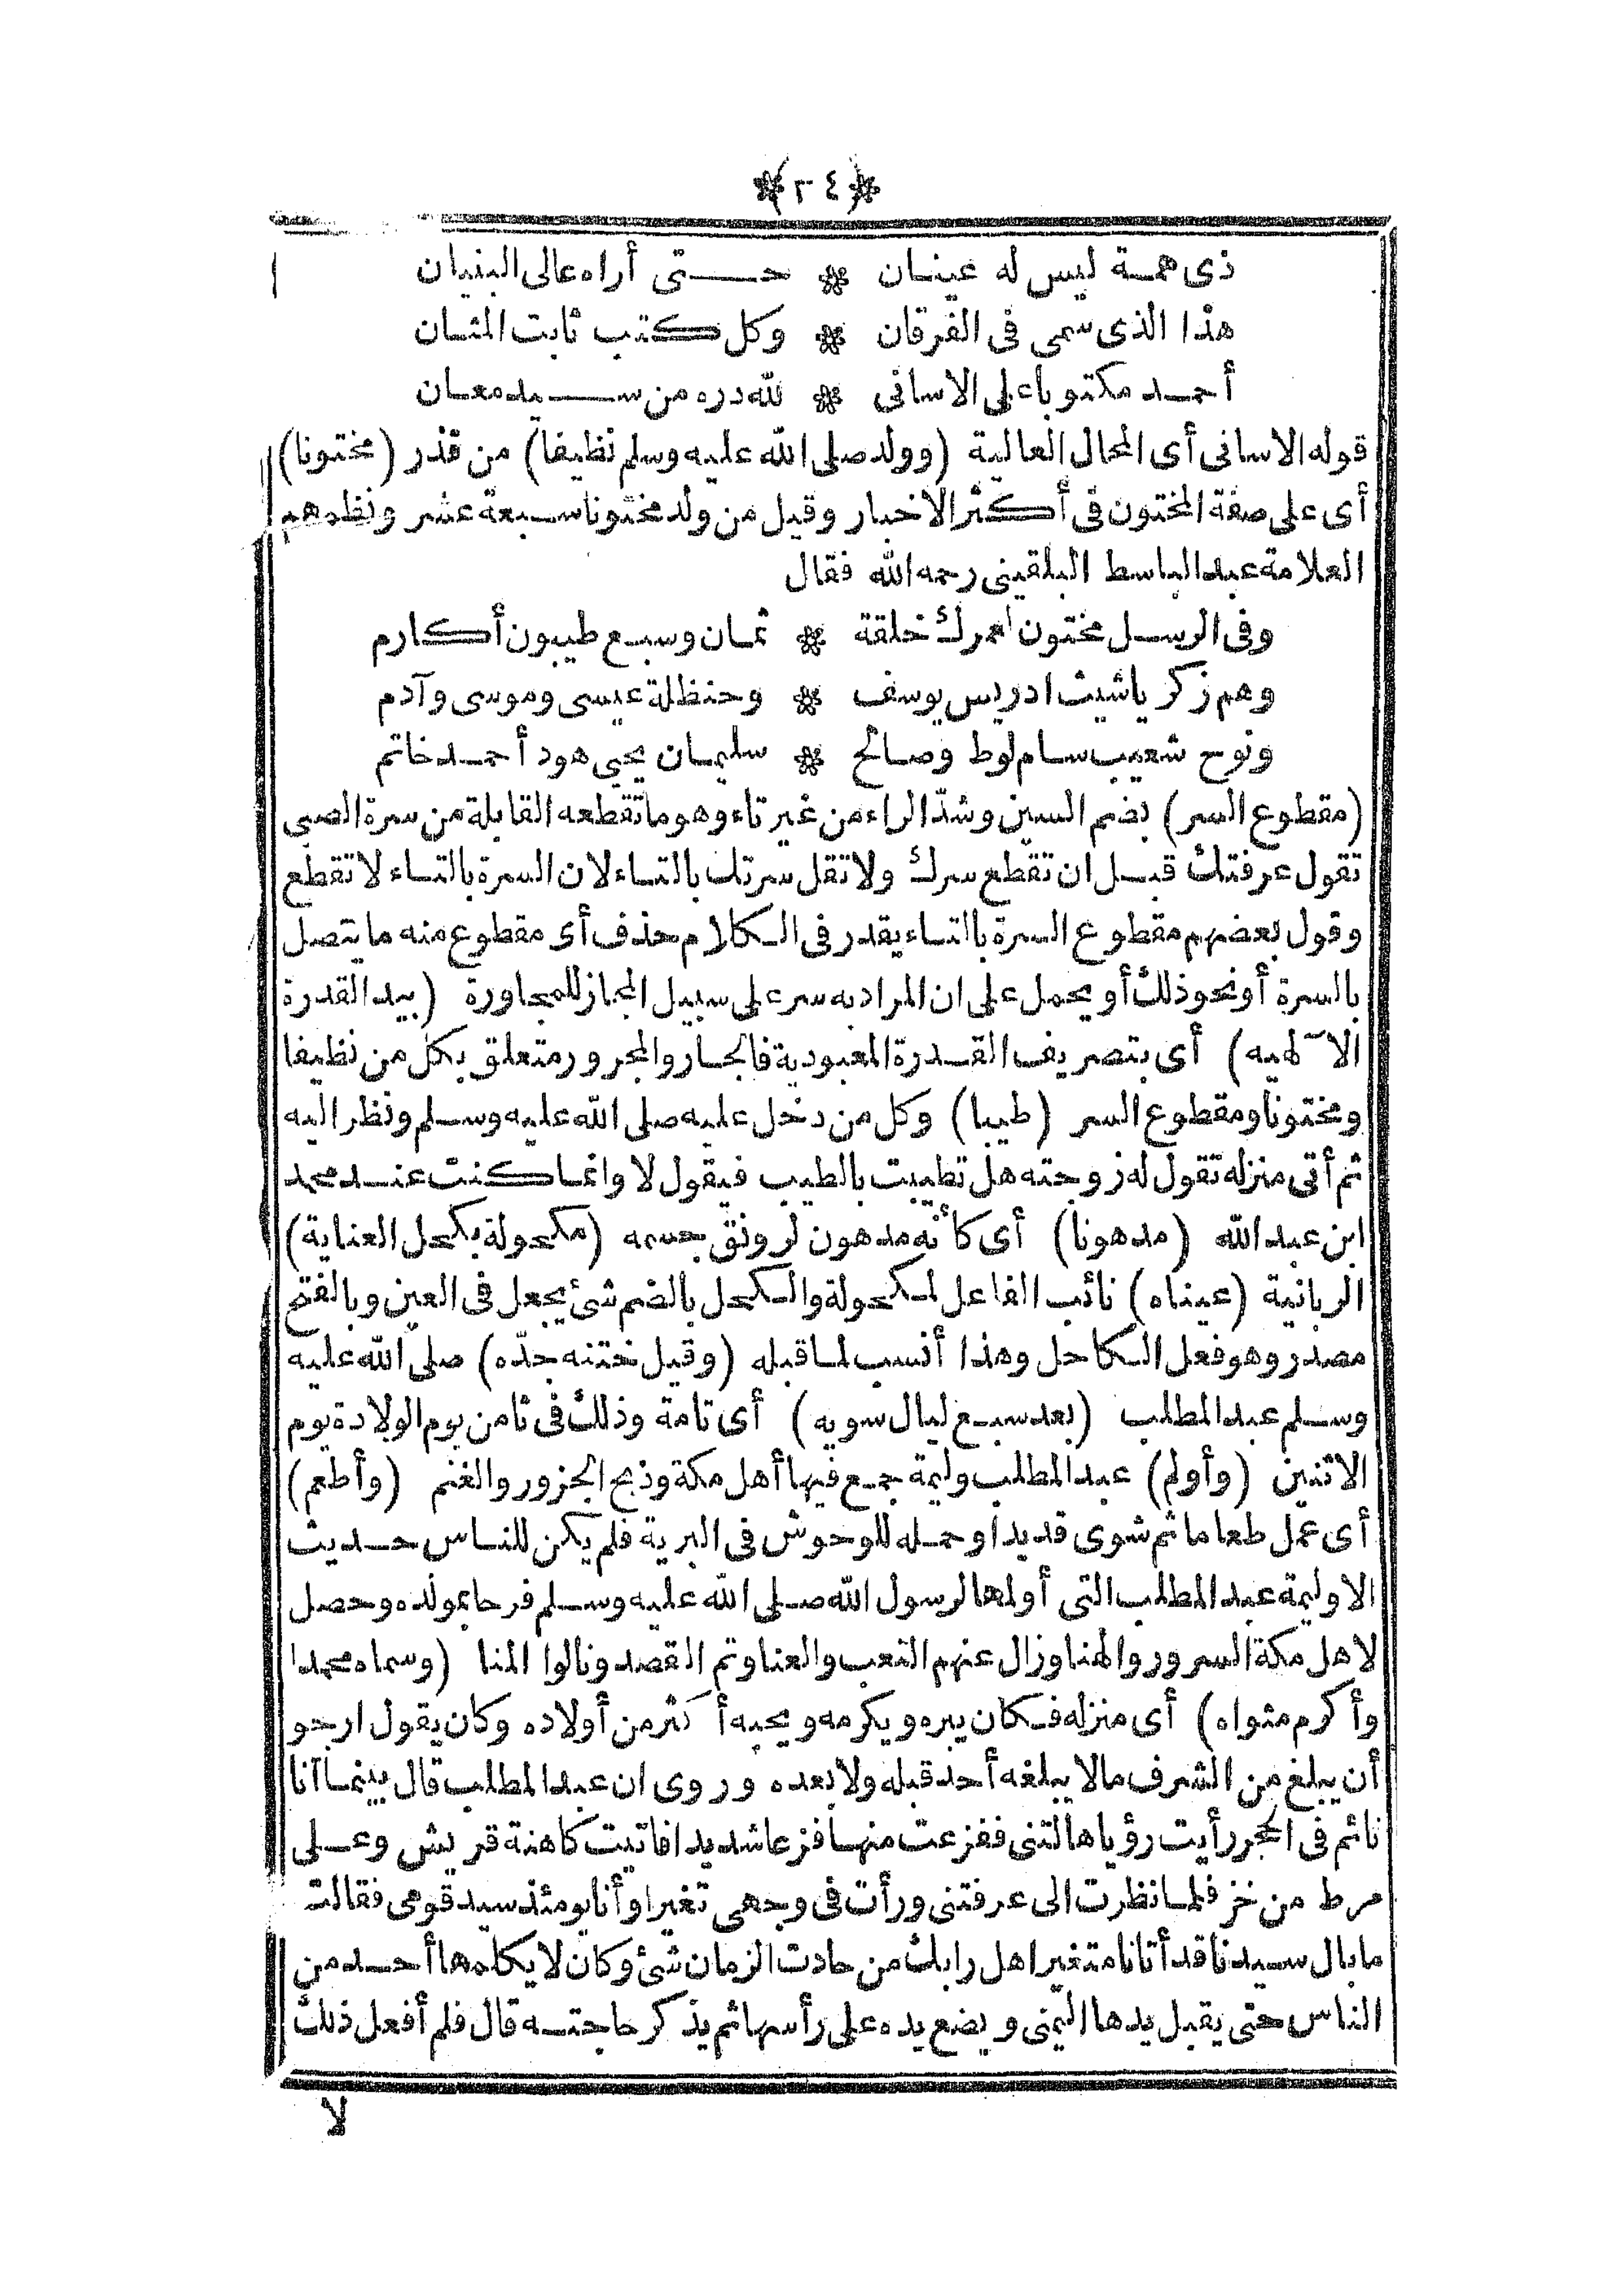 ٢٤
ذى همة ليس له عينان * حتى أراه عالى البنيان
هذا الذى سمى فى الفرقان * وكل كتب ثابت المثان
أحمد مكتوبا على الاسانى * لله دره من سيد معان
قوله الاسانى أى المحال العالية (وولد صلى الله عليه وسلم نظيفا) من قذر (مختونا)
أى على صفة المختون فى أكثر الاخبار وقيل من ولد مختونا سبعة عشر ونظمهم
العلامة عبد الباسط البلقينى رحمه الله فقال
وفى الرسل مختون لعمرك خلقة * ثمان وسبع طيبون أكارم
وهم زكريا شيث ادريس يوسف * وحنظلة عيسى وموسى وآدم
ونوح شعيب سام لوط وصالح * سليمان يحيى هود أحمد خاتم
(مقطوع السر) بضم السين وشد الراء من غير تاء وهو ما تقطعه القابلة من سرة الصبى
تقول عرفتك قبل ان تقطع سرك ولا تقل سرتك بالتاء لان السرة بالتاء لا تقطع
وقول بعضهم مقطوع السرة بالتاء يقدر فى الكلام حذف أى مقطوع منه ما يتصل
بالسرة أو نحو ذلك أو يحمل على ان المراد به سر على سبيل المجاز للمجاورة (بيد القدرة
الآلهيه) أى بتصريف القدرة المعبودية فالجار والمجرور متعلق بكل من نظيفا
ومختونا ومقطوع السر (طيبا) وكل من دخل عليه صلى الله عليه وسلم ونظر اليه
ثم أتى منزله تقول له زوجته هل تطيبت بالطيب فيقول لا وانما كنت عند محمد
ابن عبد الله (مدهونا) أى كأنه مدهون لرونق جسمه (مكحولة بكحل العناية)
الربانية (عيناه) نائب الفاعل لمكحولة والكحل بالضم شئ يجعل فى العين وبالفتح
مصدر وهو فعل الكاحل وهذا أنسب لما قبله (وقيل ختنه جدّه) صلى الله عليه
وسلم عبد المطلب (بعد سبع ليال سويه) أى تامة وذلك فى ثامن يوم الولادة يوم
الاثنين (وأولم) عبد المطلب وليمة جمع فيها أهل مكة وذبح الجزور والغنم (وأطعم)
أى عمل طعاما ثم شوى قديدا وحمله للوحوش فى البرية فلم يكن للناس حديث
الا وليمة عبد المطلب التى أولمها لرسول الله صلى الله عليه وسلم فرحا بمولده وحصل
لاهل مكة السرور والهنا وزال عنهم التعب والعنا وتم القصد ونالوا المنا (وسماه محمدا
وأكرم مثواه) أى منزله فكان يبره ويكرمه ويحبه أكثر من أولاده وكان يقول ارجو
أن يبلغ من الشرف مالا يبلغه أحد قبله ولا بعده وروى ان عبد المطلب قال بينما أنا
نائم فى الحجر رأيت رؤيا هالتنى ففزعت منها فزعا شديدا فاتيت كاهنة قريش وعلى
مرط من خز فلما نظرت الى عرفتنى ورأت فى وجهى تغيرا وأنا يومئذ سيد قومى فقالت
ما بال سيدنا قد أتانا متغيرا هل رابك من حادث الزمان شئ وكان لا يكلمها أحد من
الناس حتى يقبل يدها اليمنى ويضع يده على رأسها ثم يذكر حاجته قال فلم أفعل ذلك
لا